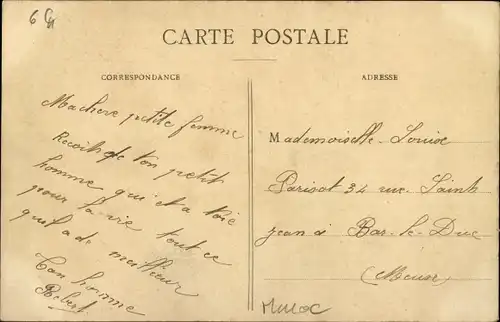 CARTE POSTALE
CORRESPONDANCE
Machere petite femme
de ton petit
homme qui
pour la vie tout ce
de meilleur
Ton homme
ADRESSE
Mademoiselle Louise
Parisot 34 rue Saint
jean à Bar-le-Duc
(Meuse)
Maroc